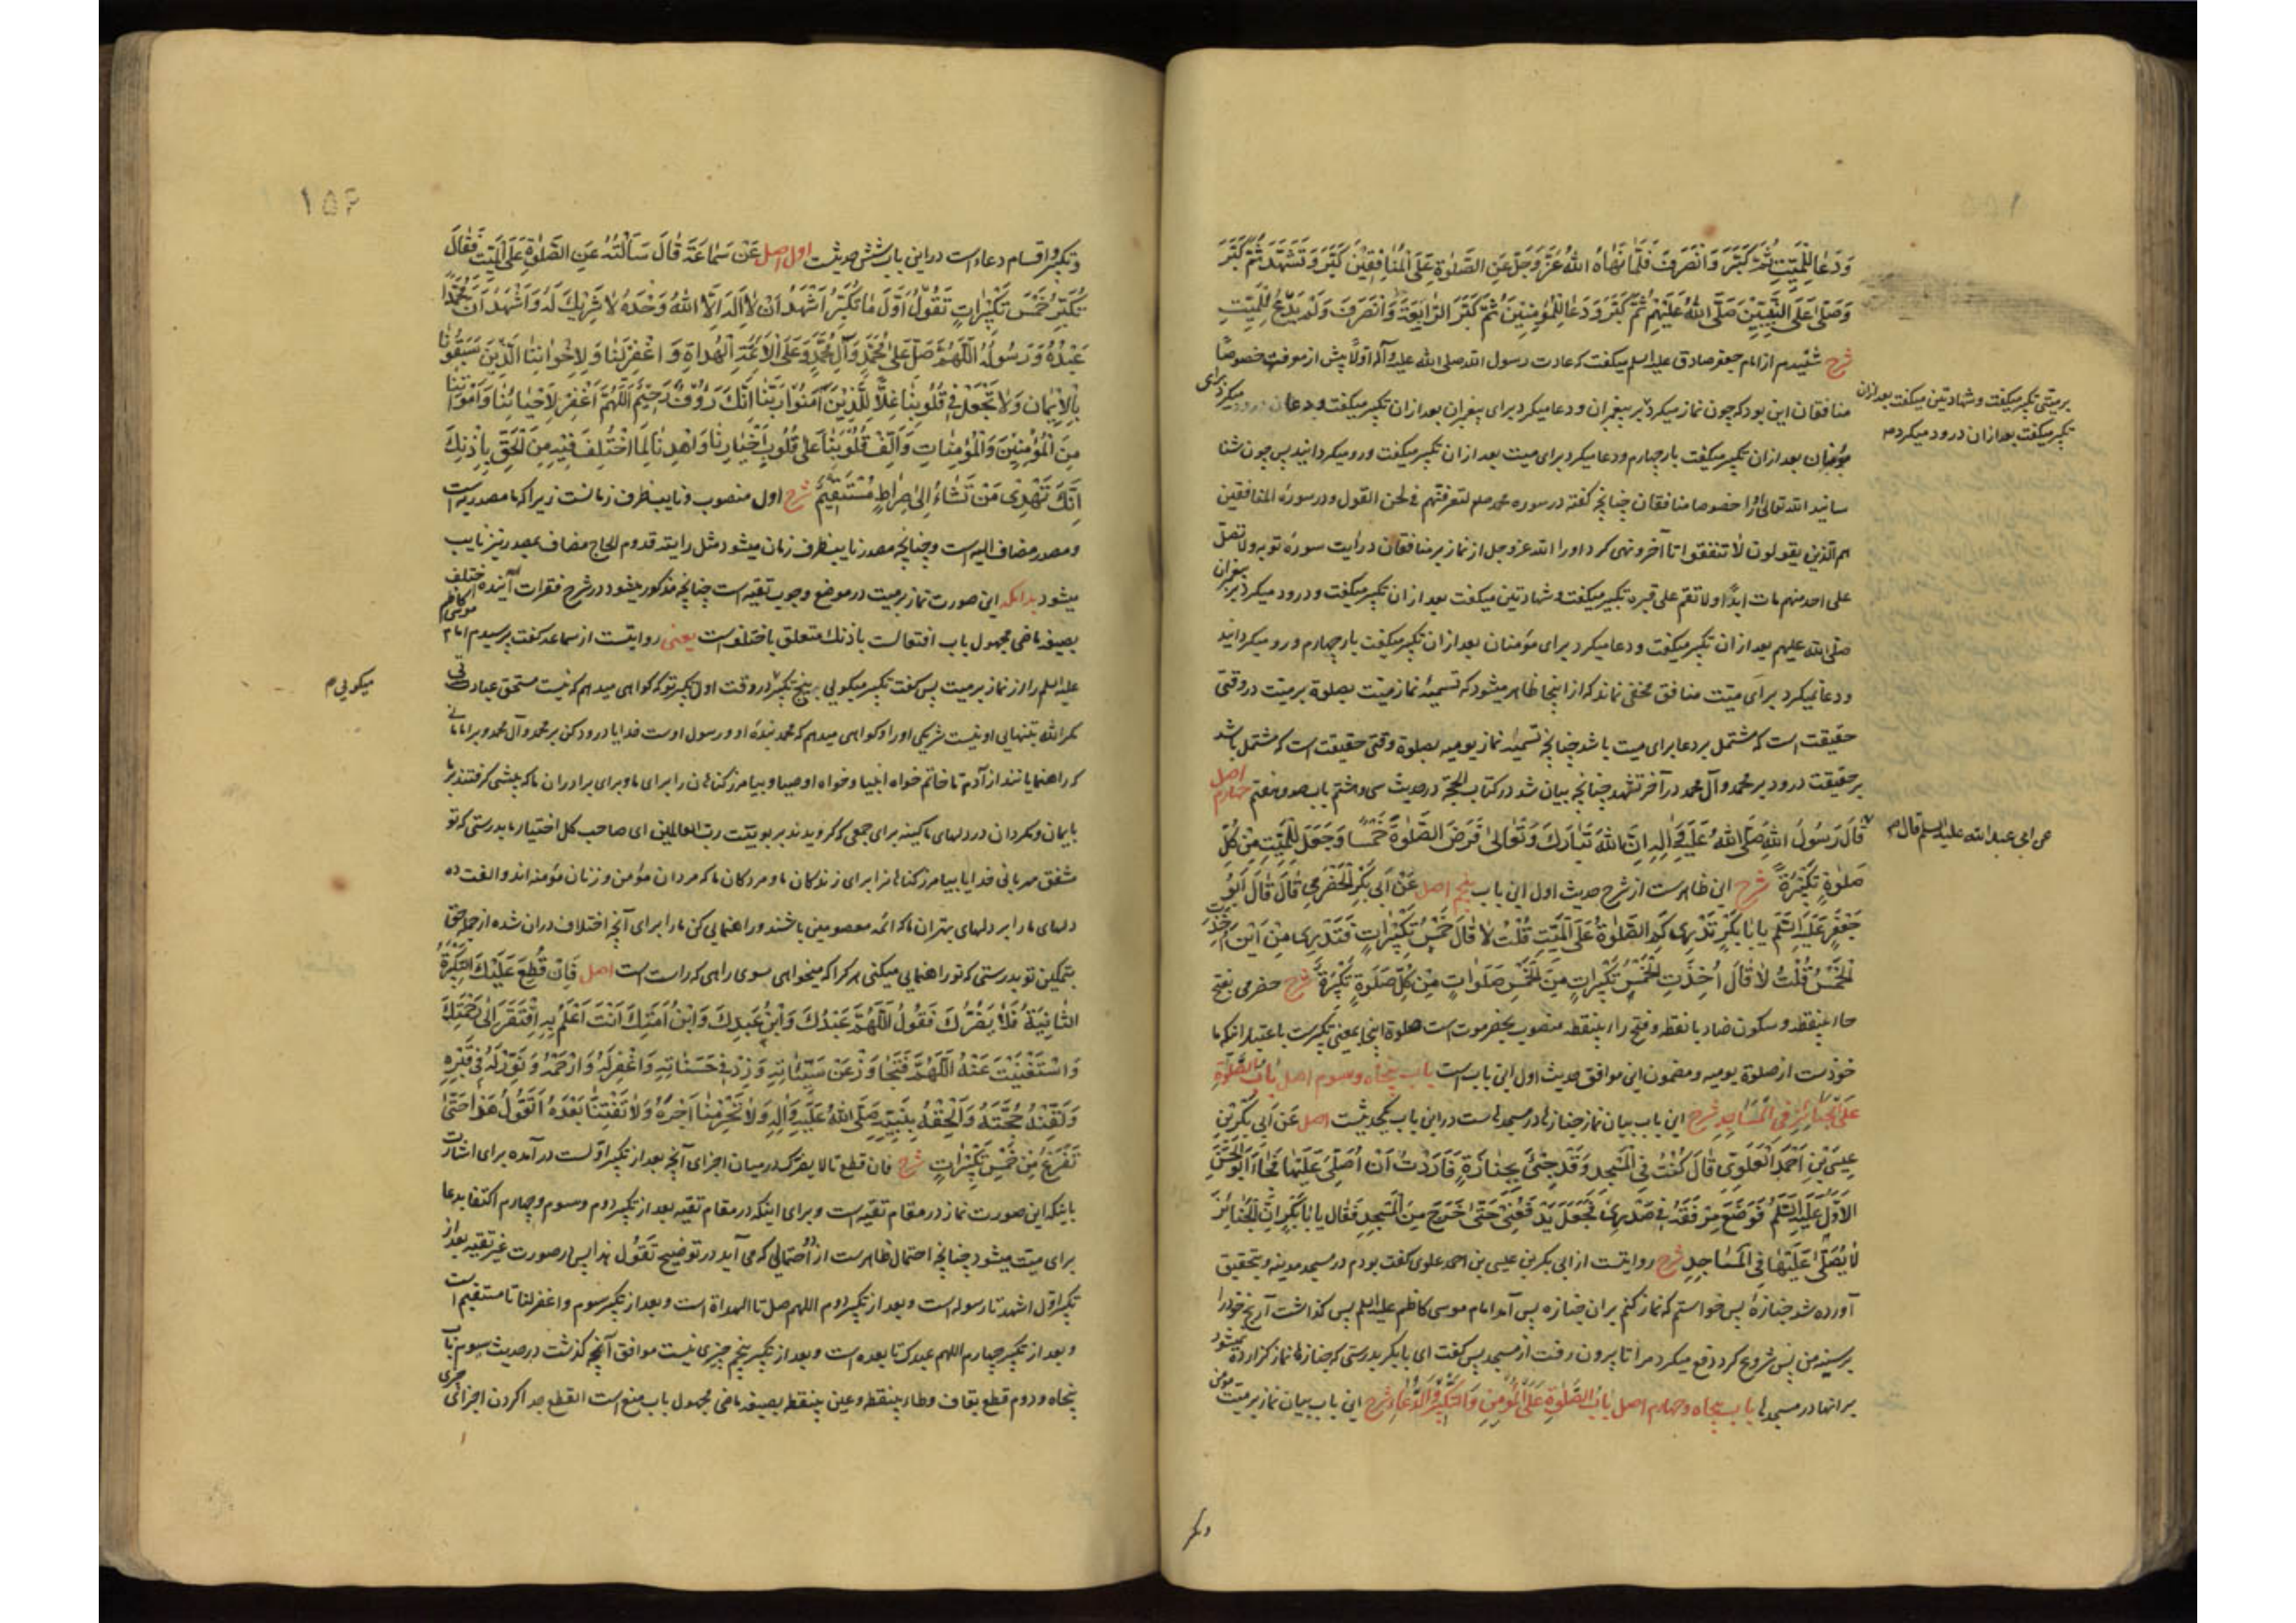 وَدَعَا لِلْمَيِّتِ ثُمَّ كَبَّرَ وَانْصَرَفَ فَلَمَّا نَهَاهُ اللهُ عَزَّ وَجَلَّ عَنِ الصَّلٰوةِ عَلَى الْمُنَافِقِينَ كَبَّرَ وَتَشَهَّدَ ثُمَّ كَبَّرَ
وَصَلّٰى عَلَى النَّبِيِّينَ صَلَّى اللهُ عَلَيْهِمْ ثُمَّ كَبَّرَ وَدَعَا لِلْمُؤْمِنِينَ ثُمَّ كَبَّرَ الرَّابِعَةَ وَانْصَرَفَ وَلَمْ يَدْعُ لِلْمَيِّتِ
شرح شنیدم از امام جعفر صادق علیه السلم میکفت که عادت رسول الله صلی الله علیه وآله اولا پیش از معرفت خصوصا
منافقان این بود که چون نماز میکرد بر پیغمبران و دعا میکرد برای پیغمبران بعد از ان تکبیر میکفت و دعا میکرد برای
بر میتی تکبیر میکفت و شهادتین میکفت بعد ازان
تکبیر میکفت بعد ازان درود میکرد
مؤمنان بعد از ان تکبیر میکفت بار چهارم و دعا میکرد برای میت بعد از ان تکبیر میکفت و رو میکردانید پس چون شنا
سانید الله تعالی او را خصوصا منافقان چنانچه کفته در سوره محمد صلم لتعرفنهم فی لحن القول و در سورهٔ المنافقین
هم الذین یقولون لا تنفقوا تا آخر و نهی کرد او را الله عز وجل از نماز بر منافقان در آیت سورهٔ توبه ولا تصل
علی احد منهم مات ابدًا ولا تقم علی قبره تکبیر میکفت و شهادتین میکفت بعد از ان تکبیر میکفت و درود میکرد بر پیغمبران
صلی الله علیهم بعد از ان تکبیر میکفت و دعا میکرد برای مؤمنان بعد از ان تکبیر میکفت بار چهارم و رو میکردانید
و دعا نمیکرد برای میّت منافق مخفی نماند که از اینجا ظاهر میشود که تسمیهٔ نماز میّت بصلوة بر میّت در وقتی
حقیقت است که مشتمل بر دعا برای میت باشد چنانچه تسمیهٔ نماز یومیه بصلوة وقتی حقیقت است که مشتمل باشد
بر حقیقت درود بر محمد وآل محمد در آخر تشهد چنانچه بیان شد در کتاب الحجة در حدیث سی و هشتم باب صد و هفتم اصل چهارم
عن ابی عبد الله علیه السلم قال
قَالَ رَسُولُ اللهِ صَلَّى اللهُ عَلَيْهِ وَآلِهِ اِنَّ اللهَ تَبَارَكَ وَتَعَالٰى فَرَضَ الصَّلٰوةَ خَمْسًا وَجَعَلَ لِلْمَيِّتِ مِنْ كُلِّ
صَلٰوةٍ تَكْبِيرَةً شرح این ظاهر است از شرح حدیث اول این باب پنجم اصل عَنْ أَبِي بَكْرٍ الْحَضْرَمِيِّ قَالَ قَالَ أَبُو
جَعْفَرٍ عَلَيْهِ السَّلَمُ يَا بَا بَكْرٍ تَدْرِي كَمِ الصَّلٰوةُ عَلَى الْمَيِّتِ قُلْتُ لَا قَالَ خَمْسُ تَكْبِيرَاتٍ فَتَدْرِي مِنْ اَيْنَ اُخِذَتِ
الْخَمْسُ قُلْتُ لَا قَالَ اُخِذَتِ الْخَمْسُ تَكْبِيرَاتٍ مِنَ الْخَمْسِ صَلَوَاتٍ مِنْ كُلِّ صَلَوةٍ تَكْبِيرَةً شرح حضرمی بفتح
حاء بینقطه و سکون ضاد با نقطه و فتح راء بینقطه منسوب بحضرموت است صلوة اینجا بمعنی تکبیر است باعتبار انکه ما
خوذست از صلوة یومیه و مضمون این موافق حدیث اول این باب است باب پنجاه و سوم اصل بَابُ الصَّلٰوةِ
عَلَى الْجَنَائِزِ فِي الْمَسَاجِدِ شرح این باب بیان نماز جنازها در مسجدهاست در این باب یکحدیثست اصل عَنْ أَبِي بَكْرِ بْنِ
عِيسَى بْنِ أَحْمَدَ الْعَلَوِيِّ قَالَ كُنْتُ فِي الْمَسْجِدِ وَقَدْ جِيْءَ بِجَنَازَةٍ فَاَرَدْتُ اَنْ اُصَلِّيَ عَلَيْهَا فَجَاءَ أَبُو الْحَسَنِ
الْاَوَّلُ عَلَيْهِ السَّلَمُ فَوَضَعَ مِرْفَقَهُ فِي صَدْرِي فَجَعَلَ يَدْفَعُنِي حَتّٰى خَرَجَ مِنَ الْمَسْجِدِ فَقَالَ يَا بَا بَكْرٍ اِنَّ الْجَنَائِزَ
لَا يُصَلّٰى عَلَيْهَا فِي الْمَسَاجِدِ شرح روایتست از ابی بکر بن عیسی بن احمد علوی کفت بودم در مسجد مدینه و بتحقیق
آورده شد جنازهٔ پس خواستم که نماز کنم بر ان جنازه پس آمد امام موسی کاظم علیه السلم پس کذاشت آرنج خود را
بر سینه من پس شروع کرد دفع میکرد مرا تا بیرون رفت از مسجد پس کفت ای با بکر بدرستی که جنازها نماز کزارده نمیشود
بر انها در مسجدها باب پنجاه و چهارم اصل بَابُ الصَّلٰوةِ عَلَى الْمُؤْمِنِ وَالتَّكْبِيرِ وَالدُّعَاءِ شرح این باب بیان نماز بر میّت مؤمن
وتکبیر
۱۵۶
وتکبیر واقسام دعاءاست در این باب شش حدیثست اول اصل عَنْ سَمَاعَةَ قَالَ سَاَلْتُهُ عَنِ الصَّلٰوةِ عَلَى الْمَيِّتِ فَقَالَ
تُكَبِّرُ خَمْسَ تَكْبِيرَاتٍ تَقُولُ اَوَّلَ مَا تُكَبِّرُ اَشْهَدُ اَنْ لَا اِلٰهَ اِلَّا اللهُ وَحْدَهُ لَا شَرِيكَ لَهُ وَاَشْهَدُ اَنَّ مُحَمَّدًا
عَبْدُهُ وَرَسُولُهُ اَللّٰهُمَّ صَلِّ عَلٰى مُحَمَّدٍ وَآلِ مُحَمَّدٍ وَعَلَى الْاَئِمَّةِ الْهُدَاةِ وَاغْفِرْ لَنَا وَلِاِخْوَانِنَا الَّذِينَ سَبَقُونَا
بِالْاِيمَانِ وَلَا تَجْعَلْ فِي قُلُوبِنَا غِلًّا لِلَّذِينَ آمَنُوا رَبَّنَا اِنَّكَ رَؤُفٌ رَحِيمٌ اَللّٰهُمَّ اغْفِرْ لِاَحْيَائِنَا وَاَمْوَاتِنَا
مِنَ الْمُؤْمِنِينَ وَالْمُؤْمِنَاتِ وَاَلِّفْ قُلُوبَنَا عَلٰى قُلُوبِ اَخْيَارِنَا وَاهْدِنَا لِمَا اخْتُلِفَ فِيهِ مِنَ الْحَقِّ بِاِذْنِكَ
اِنَّكَ تَهْدِي مَنْ تَشَاءُ اِلٰى صِرَاطٍ مُسْتَقِيمٍ شرح اول منصوب و نایب ظرف زمانست زیرا که ما مصدریه است
ومصدر مضاف الیه است وچنانچه مصدر نایب ظرف زمان میشود مثل رایته قدوم الحاج مضاف بمصدر نیز نایب
میشود بدانکه این صورت نماز بر میت در موضع وجوب تقیه است چنانچه مذکور میشود در شرح فقرات آینده اختلف
بصیغهٔ ماضی مجهول باب افتعالست باذنک متعلق باختلف است یعنی روایتست از سماعه کفت پرسیدم امام موسی کاظم
علیه السلم را از نماز بر میت پس کفت تکبیر میکویی پنج تکبیر در وقت اول تکبیر تو که کواهی میدهم که نیست مستحق عبادتی
میکویی
مکر الله بتنهایی او نیست شریکی او را و کواهی میدهم که محمد بندهٔ او و رسول اوست خدایا درود کن بر محمد وآل محمد و بر امامانی
که راهنمایانند از آدم تا خاتم خواه انبیا و خواه اوصیا و بیامرز کناهان را برای ما و برای برادران ما که پیشی کرفتند بر ما
بایمان و مکردان در دلهای ما کینه برای جمعی که کرویدند بربوبیّت رب العالمین ای صاحب کل اختیار ما بدرستی که تو
مشفق مهربانی خدایا بیامرز کناهانرا برای زندکان ما و مردکان ما که مردان مؤمن و زنان مؤمنه اند و الفت ده
دلهای ما را بر دلهای بهتران ما که ائمه معصومین باشند و راهنمایی کن ما را برای آنچه اختلاف دران شده از جمله حق
بتمکین تو بدرستی که تو راهنمایی میکنی هر کرا که میخواهی بسوی راهی که راست است اصل فَاِنْ قُطِعَ عَلَيْكَ التَّكْبِيرَةُ
الثَّانِيَةُ فَلَا يَضُرُّكَ تَقُولُ اَللّٰهُمَّ عَبْدُكَ وَابْنُ عَبْدِكَ وَابْنُ اَمَتِكَ اَنْتَ اَعْلَمُ بِهِ افْتَقَرَ اِلٰى رَحْمَتِكَ
وَاسْتَغْنَيْتَ عَنْهُ اَللّٰهُمَّ فَتَجَاوَزْ عَنْ سَيِّئَاتِهِ وَزِدْ فِي حَسَنَاتِهِ وَاغْفِرْ لَهُ وَارْحَمْهُ وَنَوِّرْ لَهُ فِي قَبْرِهِ
وَلَقِّنْهُ حُجَّتَهُ وَاَلْحِقْهُ بِنَبِيِّهِ صَلَّى اللهُ عَلَيْهِ وَآلِهِ وَلَا تَحْرِمْنَا اَجْرَهُ وَلَا تَفْتِنَّا بَعْدَهُ تَقُولُ هٰذَا حَتّٰى
تَفْرُغَ مِنْ خَمْسِ تَكْبِيرَاتٍ شرح فان قطع تا لا یضرک در میان اجزای آنچه بعد از تکبیر اولست در آمده برای اشارت
باینکه این صورت نماز در مقام تقیّه است و برای اینکه در مقام تقیه بعد از تکبیر دوم و سوم و چهارم اکتفا بدعا
برای میّت میشود چنانچه احتمال ظاهر است از دو احتمالی که می آید در توضیح تَقُولُ هذا پس در صورت غیر تقیه بعد از
تکبیر اول اشهد تا رسوله است و بعد از تکبیر دوم اللهم صل تا الهداة است و بعد از تکبیر سوم واغفر لنا تا مستقیم است
و بعد از تکبیر چهارم اللهم عبدک تا بعده است و بعد از تکبیر پنجم چیزی نیست موافق آنچه کذشت در حدیث سوم باب
پنجاه و دوم قطع بقاف وطاء بینقطه وعین بینقطه بصیغهٔ ماضی مجهول باب منع است القطع جدا کردن اجزائی چیزی